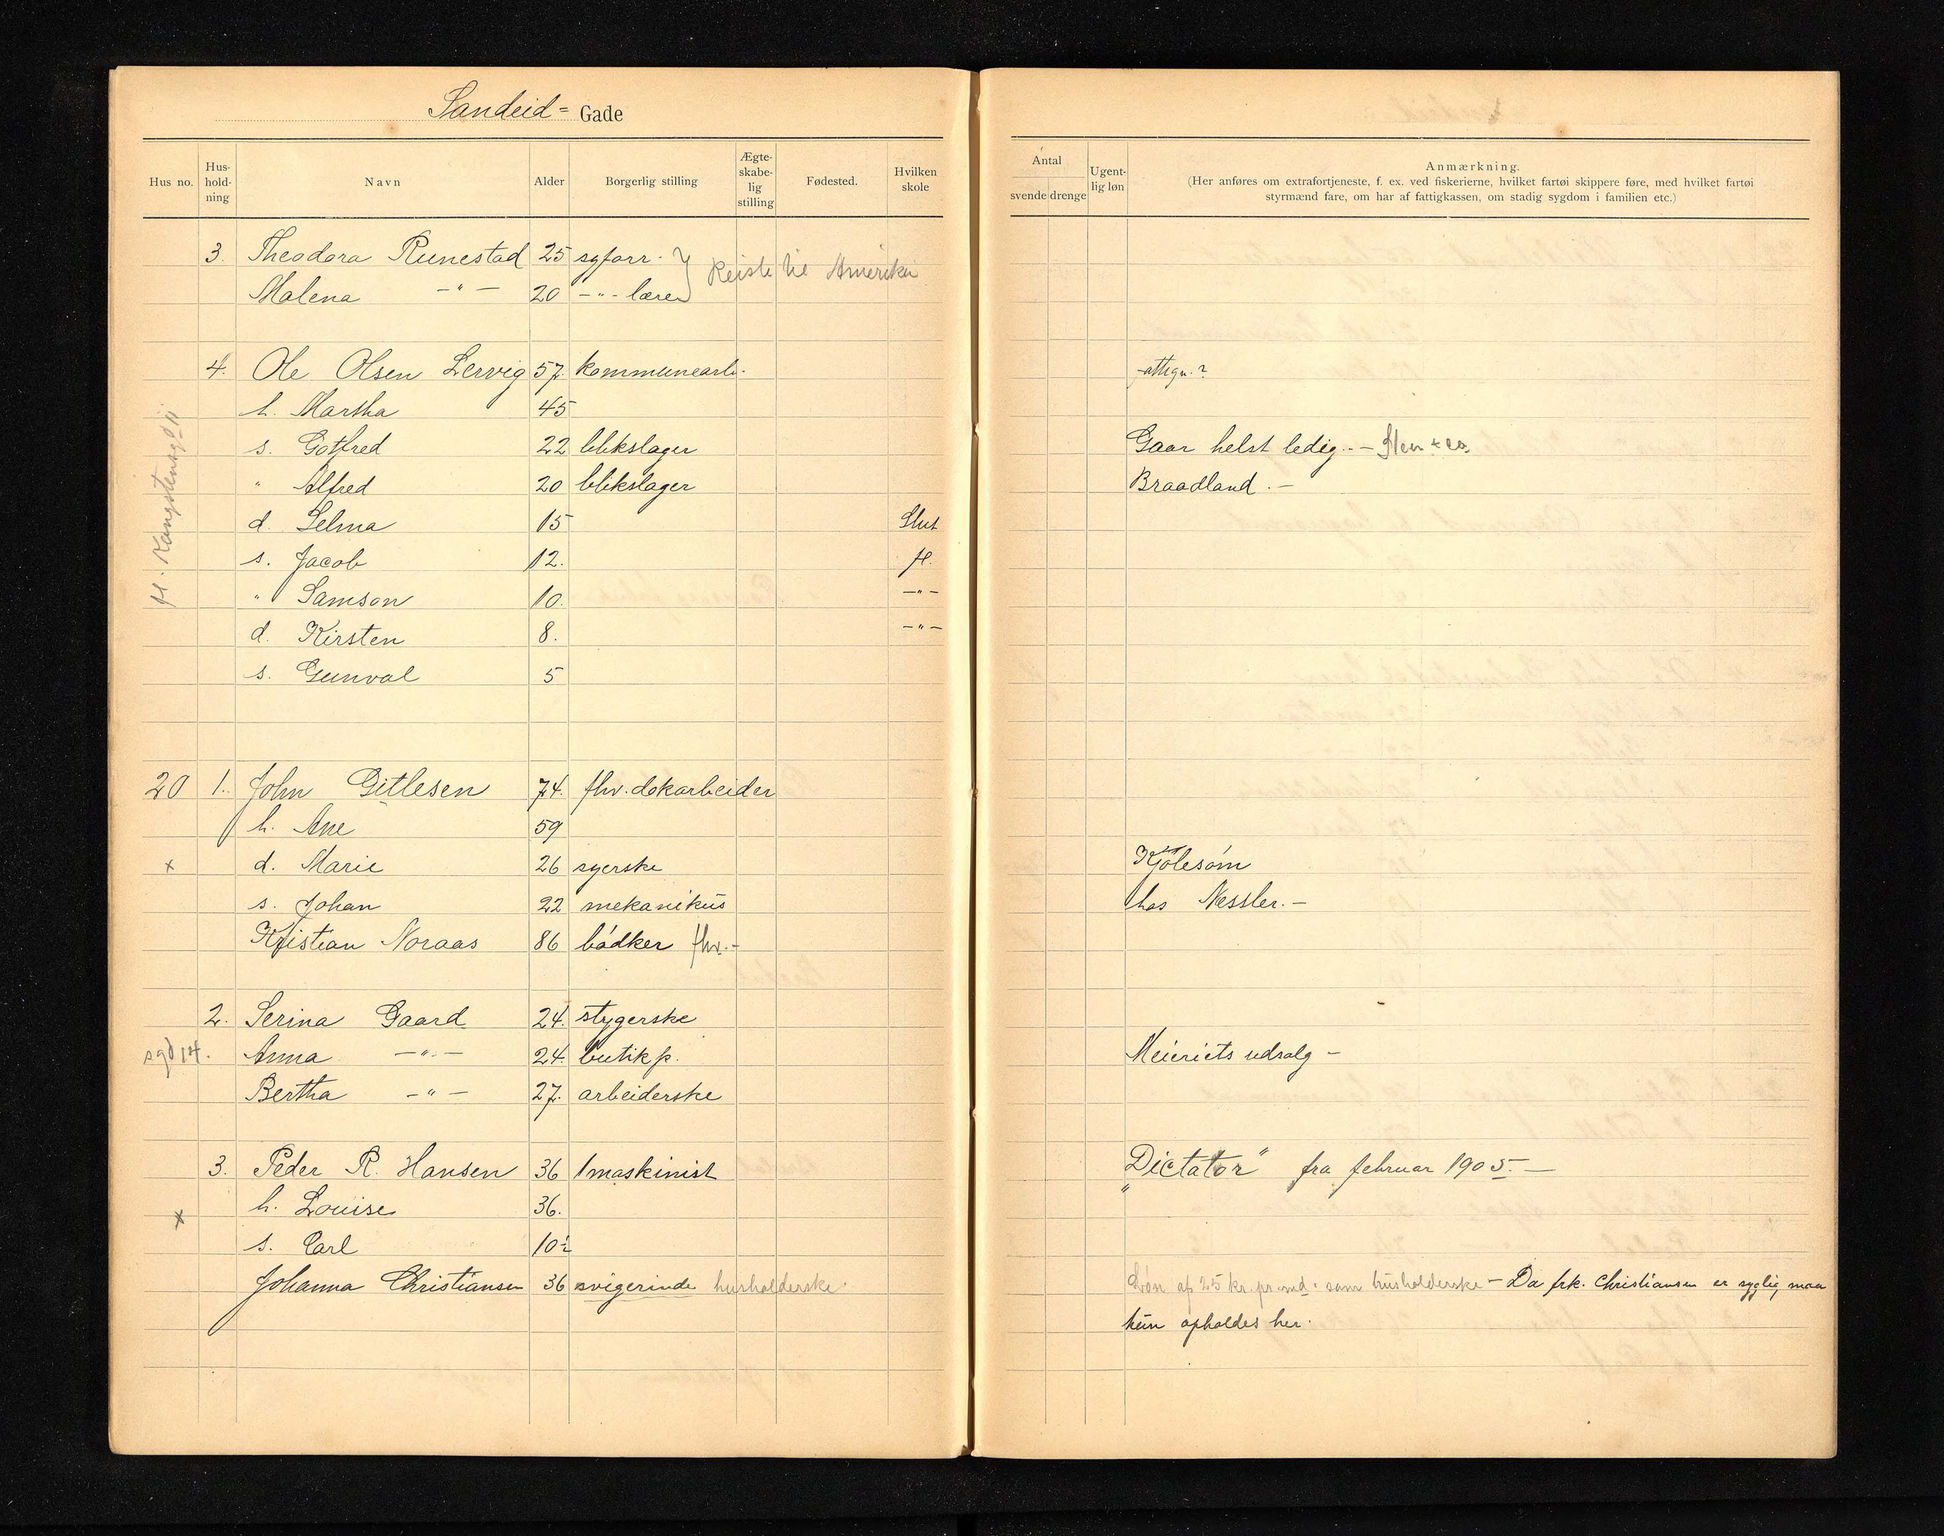 Sandeid = Gade
Hus no. Hus-hold-ning Navn Alder Borgerlig stilling Ægte-skabe-lig stilling Fødested. Hvilken skole
Antal svende drenge Ugent-lig løn Anmærkning.
(Her anføres om extrafortjeneste, f. ex. ved fiskerierne, hvilket fartøi skippere føre, med hvilket fartøi
styrmænd fare, om har af fattigkassen, om stadig sygdom i familien etc.)
3. Theodora Runestad 25 syforr. Reiste til Amerika
Malena —"— 20 —"— lærer
4. Ole Olsen Lervig 57. kommunearb.
h. Martha 45
s. Gotfred 22 blikslager Gaar helst ledig. —
" Alfred 20 blikslager Braadland. —
d. Selma 15 Slut
s. Jacob 12. fl.
" Samson 10. —"—
d. Kirsten 8. —"—
s. Gunval 5
20 1. John Gitlesen 74. fhv. dokarbeider
h. Ane 59
x d. Marie 26 syerske
s. Johan 22 mekanikus hos Nessler. —
Kristian Noraas 86 bødker fhv. —
2. Serina Gaard 24. strygerske
Anna —"— 24. butikp. Meieriets udsalg —
Bertha —"— 27. arbeiderske
3. Peder R. Hansen 36 1 maskinist "Dictator" fra februar 1905. —
x h. Louise 36.
s. Carl 10½
Johanna Christiansen 36 svigerinde husholderske. Løn af 25 kr. pr. md. som husholderske — Da frk. Christiansen er sygelig, maa
kun opholdes her.